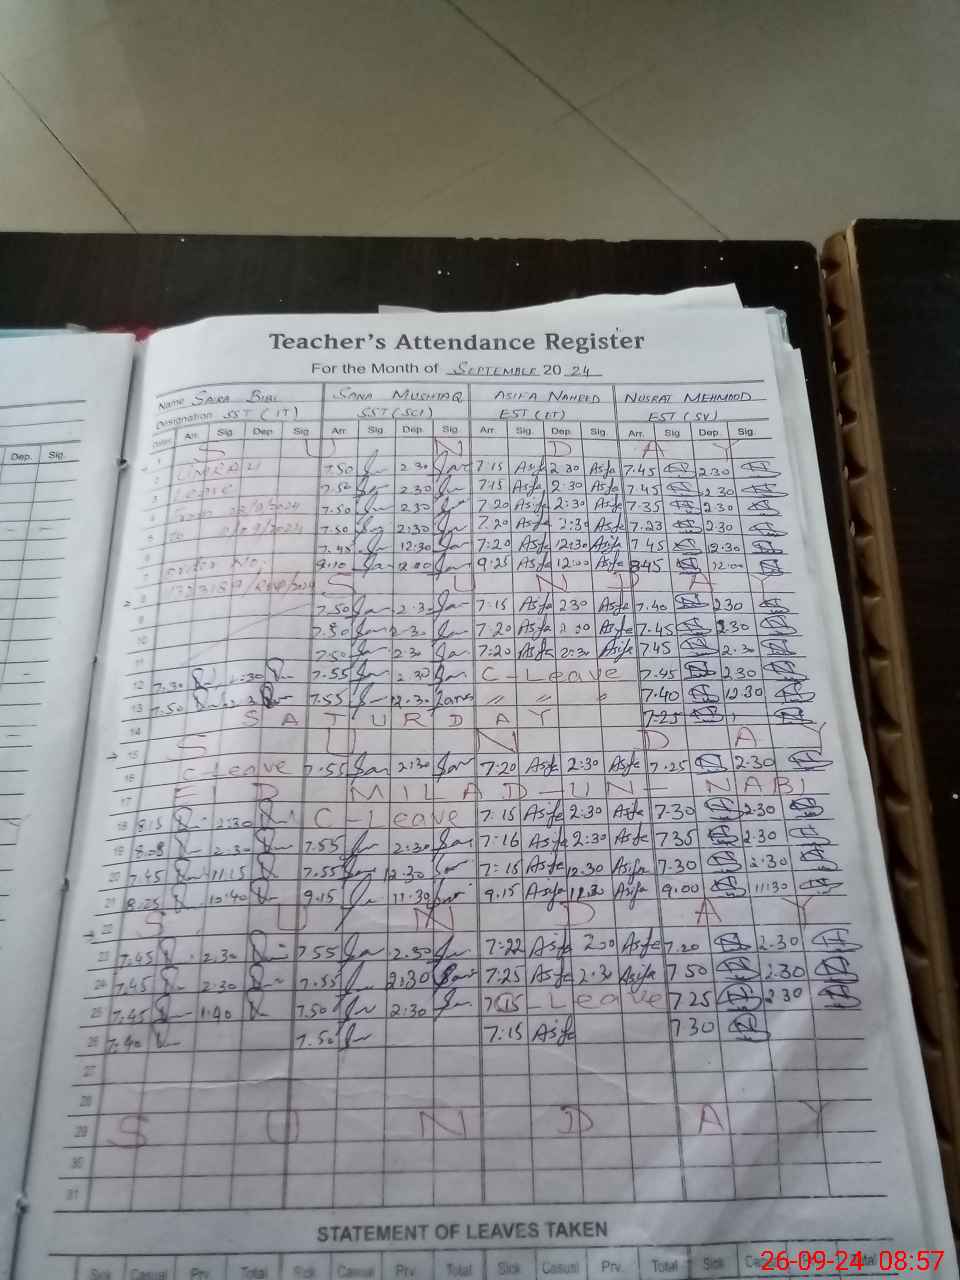 Teacher's Attendance Register
For the Month of SEPTEMBER 2024
Name SAIRA BIBI SANA MUSHTAQ ASIFA NAHEED NUSRAT MEHMOOD
Designation SST (IT) SST (SCI) EST (IT) EST (SV)
Dep. Sig.
Dates Arr. Sig. Dep. Sig. Arr. Sig. Dep. Sig. Arr. Sig. Dep. Sig. Arr. Sig. Dep. Sig.
1 SUNDAY
2 UMRAH 7.50 2.30 7.15 Asifa 2.30 Asifa 7.45 2.30
3 Leave 7.50 2.30 7.15 Asifa 2.30 Asifa 7.45 2.30
4 From 7.50 2.30 7.20 Asifa 2:30 Asifa 7.35 2.30
5 To 7.50 2:30 7.20 Asifa 2:30 Asifa 7.23 2.30
6 7.45 12.30 7:20 Asifa 12:30 Asifa 7.45 12.30
7 order No. 9.10 12.00 9:25 Asifa 12:00 Asifa 8.45 12.00
8 SUNDAY
9 7.50 2.3 7.15 Asifa 2 30 Asifa 7.40 2.30
10 7.50 2.30 7:20 Asifa 2.30 Asifa 7.45 2.30
11 7.50 2.30 7:20 Asifa 2:30 Asifa 7.45 2.30
12 7.30 2.30 7.55 2.30 C-Leave 7.45 2.30
13 7.50 7.55 12.30 〃 〃 〃 7.40 12.30
14 SATURDAY 7.25
15 SUNDAY
16 C Leave 7.55 2:30 7:20 Asifa 2:30 Asifa 7.25 2.30
17 EID MILAD-UN-NABI
18 8.15 2:30 C-Leave 7:15 Asifa 2:30 Asifa 7.30 2.30
19 8.05 2:30 7.55 2:30 7:16 Asifa 2:30 Asifa 7 35 2.30
20 7.45 11.15 7.55 12.30 7:15 Asifa 12.30 Asifa 7.30 2.30
21 8.25 10.40 9.15 11.30 9.15 Asifa 11.30 Asifa 9.00 11:30
22 SUNDAY
23 7.45 2.30 7 55 2.30 7:22 Asifa 2:30 Asifa 7.20 2.30
24 7.45 2.30 7.55 2:30 7:25 Asifa 2:30 Asifa 7 50 2.30
25 7.45 1.40 7.50 2:30 C-Leave 7 25 2 30
26 7.40 7.50 7:15 Asifa 7 30
27
28
29 SUNDAY
30
31
STATEMENT OF LEAVES TAKEN
Sick Casual Prv. Total Sick Casual Prv. Total Sick Casual Prv. Total Sick Total
26-09-24 08:57